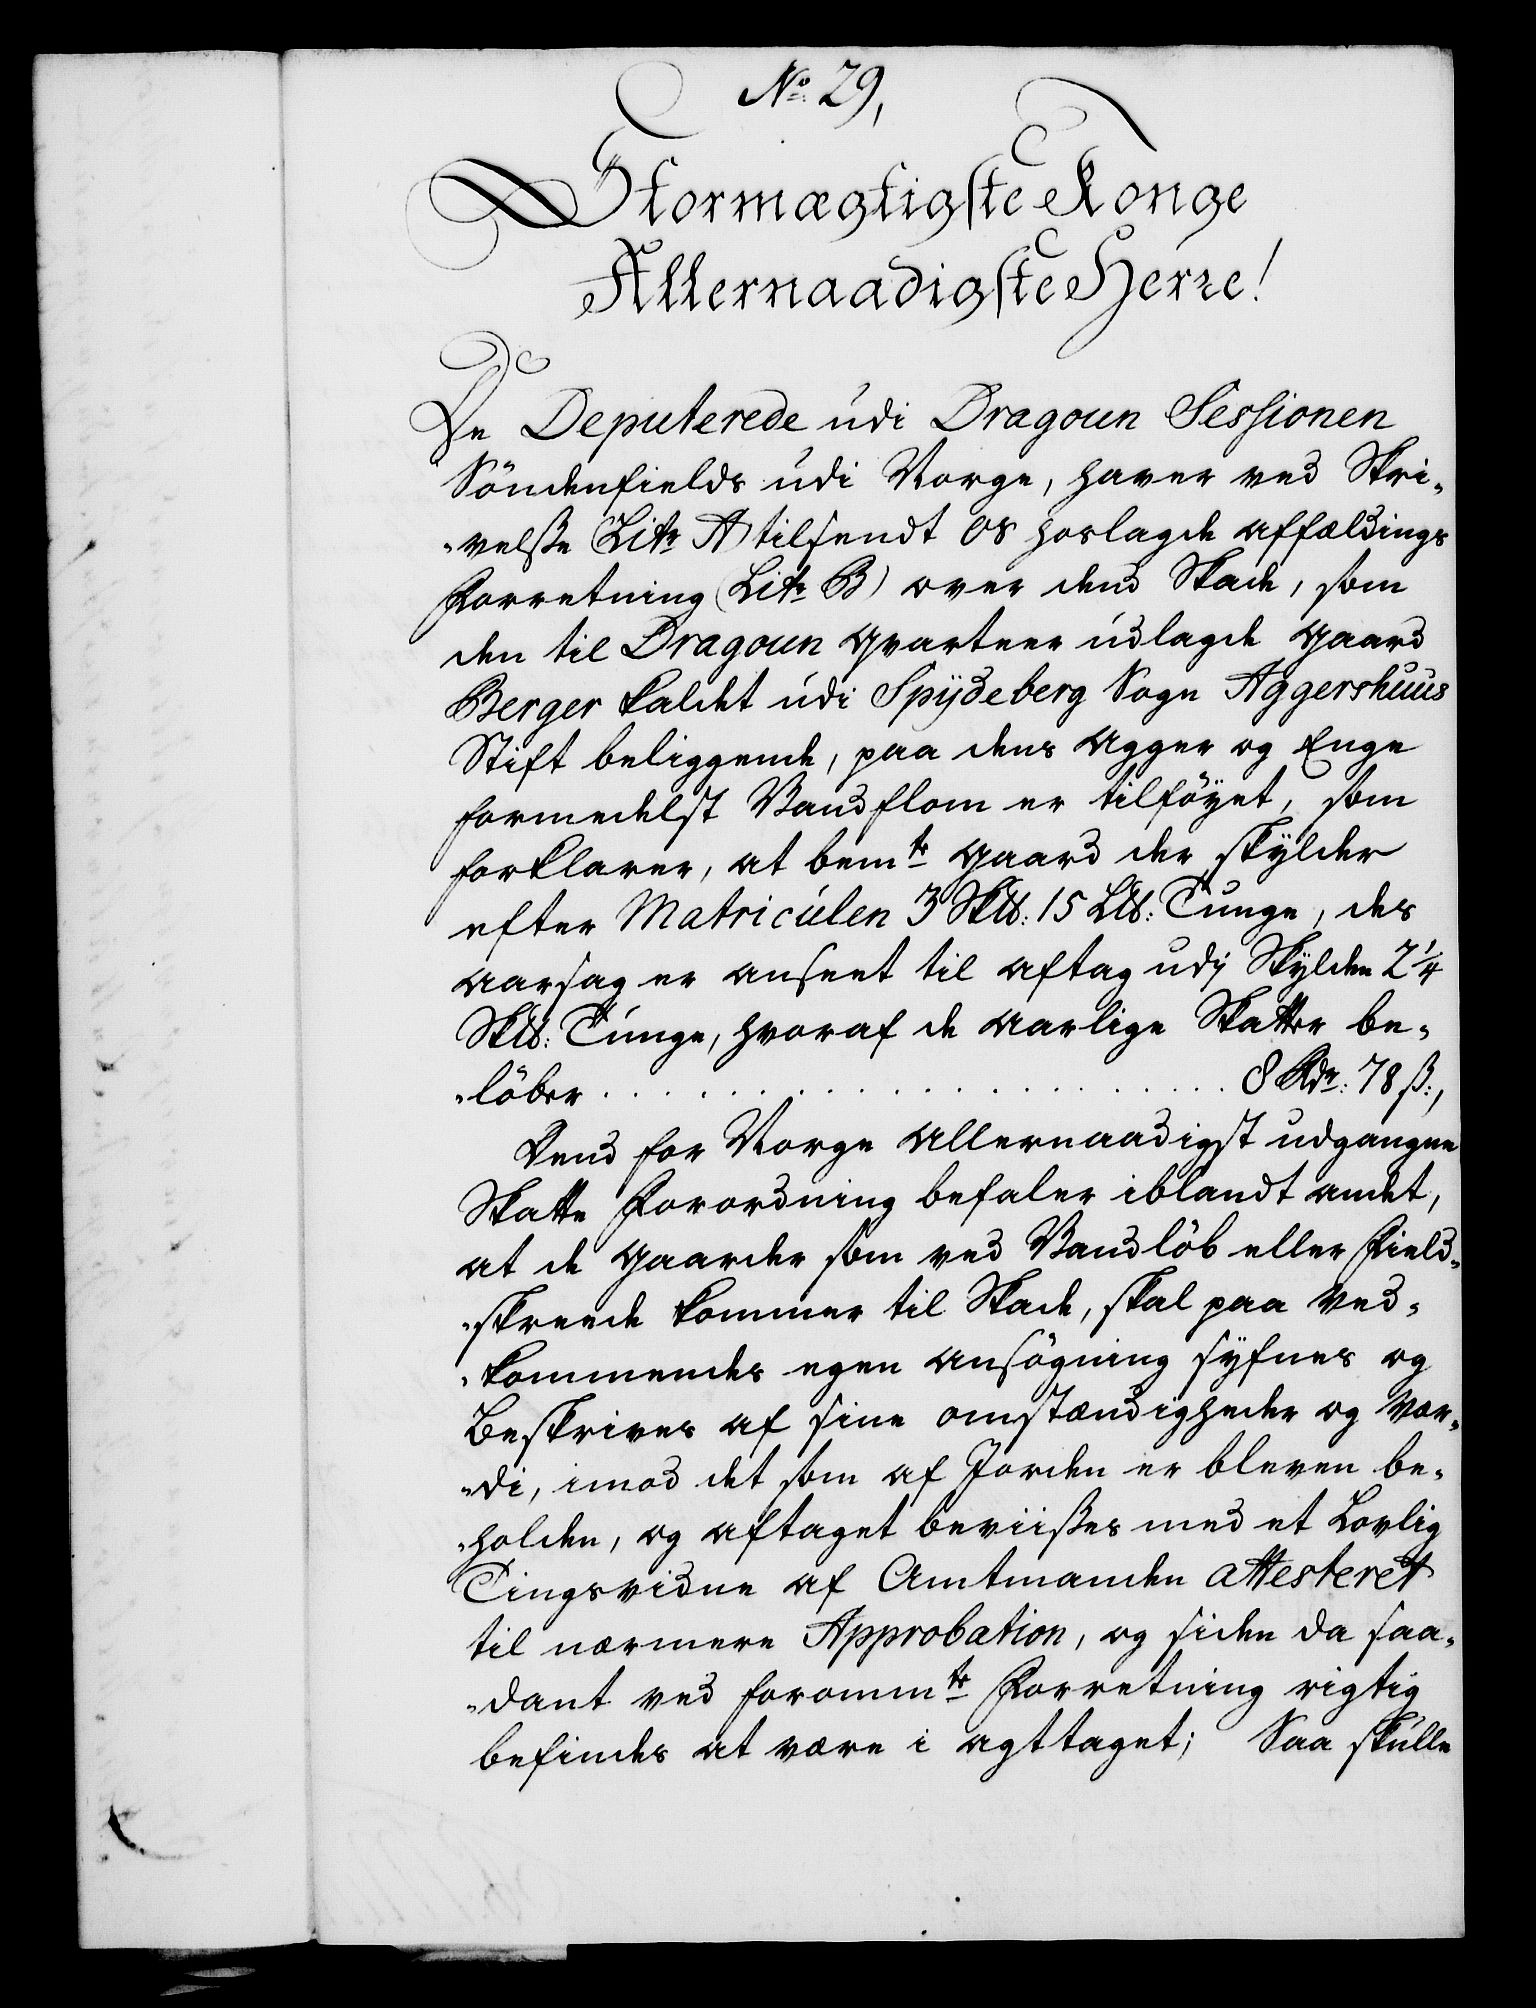 No. 29,
Stormægtigste Konge
Allernaadigste Herre!
De Deputerede udi Dragoun Sessionen
Söndenfields udi Norge, haver ved Skri-
-velsse (Litr A) tilsendt os hoslagde affældings
Forretning (Litr B) over dend Skade, som
den til Dragoun Qvarteer udlagde Gaard
Berger kaldet udi Spÿdeberg Sogn Aggershuus
Stift beliggende, paa dens Agger og Enge
formedelst Vandflom er tilföyet, som
forklarer, at bemte Gaard der skylder
efter Matriculen 3 Sk℔: 15 L℔: Tunge, des
aarsag er anseet til aftag udj Skylden 2 1/4
Sk℔: Tunge, hvoraf de aarlige Skatter be-
-löber . . . . . . . . . . . . . . . . . . . 8 Rdr: 78 ß:,
Dend for Norge Allernaadigst udgangne
Skatte Forordning befaler iblandt andet,
at de Gaarder som ved Vandlöb eller Field-
-skreede kommer til Skade, skal paa ved-
-kommendes egen ansögning syfnes og
Beskrives af sine omstændigheder og Vær-
-di, imod det som af Jorden er bleven be-
-holden, og aftaget beviisses med et Lovlig
Tingsvidne af Amtmanden attesteret
til nærmere Approbation, og siden da saa-
-dant ved forommte Forretning rigtig
befindes at være i agttaget; Saa skulle